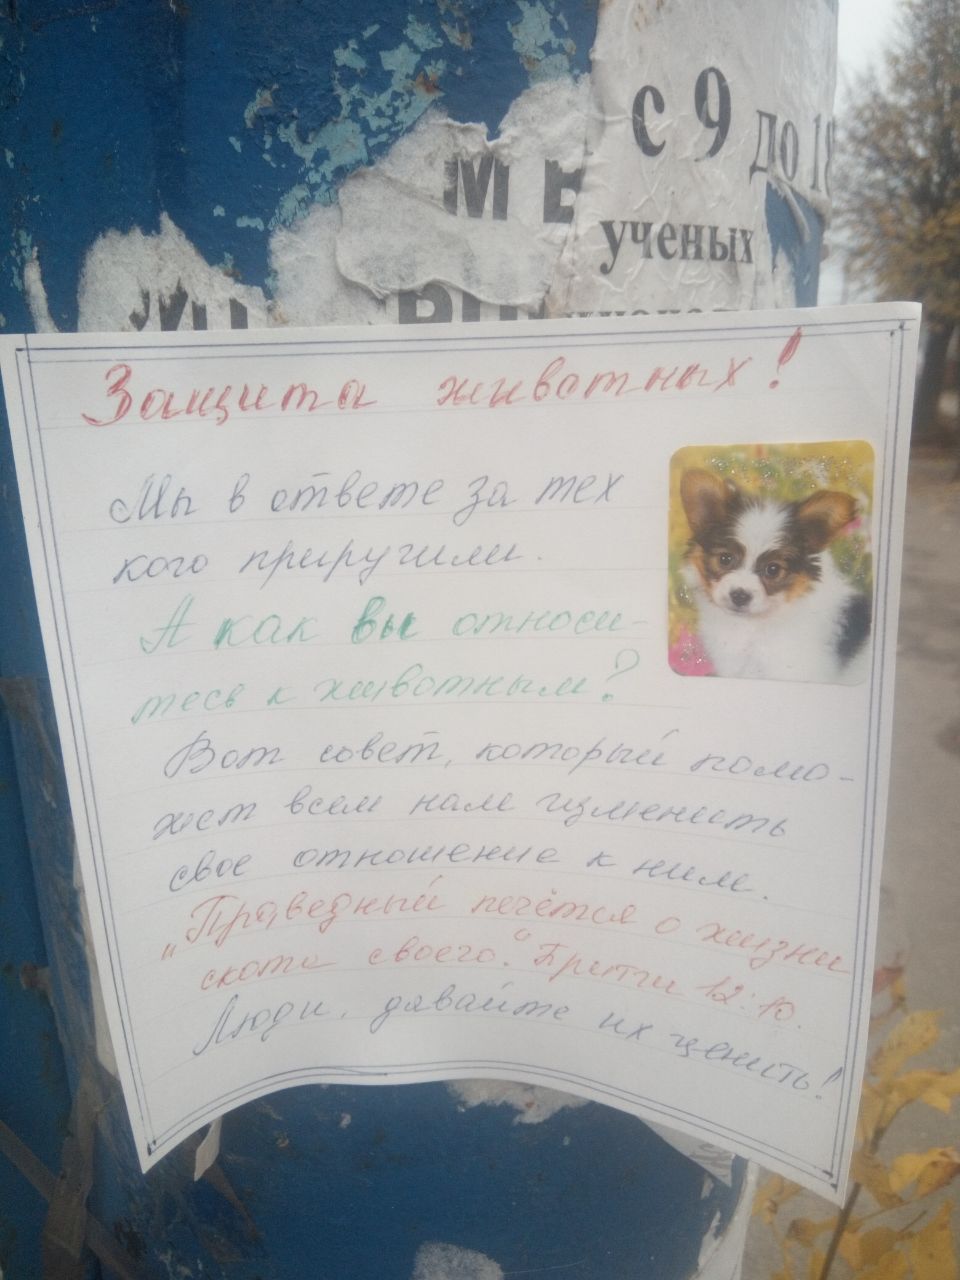 с 9 до 18
М В
ученых
Защита животных!
Мы в ответе за тех
кого приручили.
А как вы относи-
тесь к животным?
Вот совет, который помо-
жет всем нам изменить
свое отношение к ним.
„Праведный печётся о жизни
скота своего.“ Притчи 12:10.
Люди, давайте их ценить!